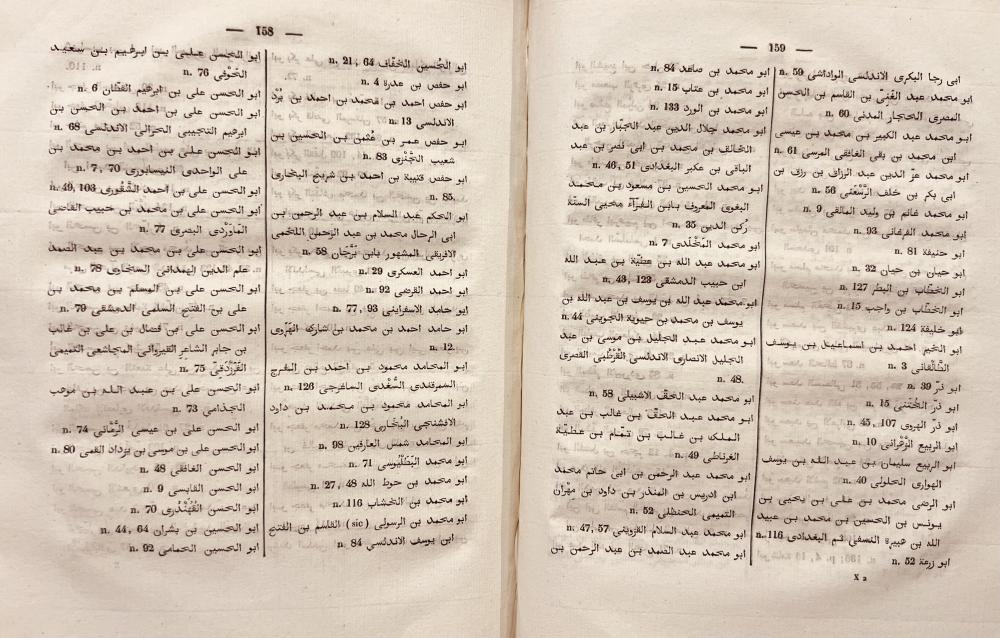 — 158 —
ابو الحسن علي بن ابرهيم بن سعيد
الحوفي n. 76
ابو الحسن على بن ابرهيم القطان n. 6
ابو الحسن على بن احمد بن الحسن بن
ابرهيم التجيبي الحرالي الاندلسي n. 68
ابو الحسن على بن احمد بن محمد بن
على الواحدى النيسابورى n. 7, 70
ابو الحسن على بن احمد الشقورى n. 49, 103
ابو الحسن على بن محمد بن حبيب القاضى
الماوردى البصرى n. 77
ابو الحسن على بن محمد بن عبد الصمد
علم الدين الهمدانى السخاوى n. 78
ابو الحسن على بن المسلم بن محمد بن
على بن الفتح السلمى الدمشقى n. 79
ابو الحسن على بن فضال بن على بن غالب
بن جابر الشاعر القيروانى المجاشعى التميمى
الفرزدقى n. 75
ابو الحسن على بن عبد الله بن موهب
الجذامى n. 73
ابو الحسن على بن عيسى الرمانى n. 74
ابو الحسن على بن موسى بن يزداد القمى n. 80
ابو الحسن الغافقى n. 48
ابو الحسن القابسى n. 9
ابو الحسن القهندرى n. 70
ابو الحسين بن بشران n. 44, 64
ابو الحسين الحمامى n. 92
ابو الحسين الخفاف n. 21, 64
ابو حفص بن عدرة n. 4
ابو حفص احمد بن محمد بن احمد بن برد
الاندلسى n. 13
ابو حفص عمر بن عثمن بن الحسين بن
شعيب الجنزى n. 83
ابو حفص قتيبة بن احمد بن شريح البخارى
n. 85.
ابو الحكم عبد السلام بن عبد الرحمن بن
ابى الرحال محمد بن عبد الرحمن اللخمى
الافريقى المشهور بابن برجان n. 58
ابو احمد العسكرى n. 29
ابو احمد القرضى n. 92
ابو حامد الاسفراينى n. 77, 93
ابو حامد احمد بن محمد بن شارك الهروى
n. 12.
ابو المحامد محمود بن احمد بن الفرج
السمرقندى السغدى الساغرجى n. 126
ابو المحامد محمود بن محمد بن داود
الافشنجى البخارى n. 128
ابو المحامد شمس العارفين n. 98
ابو محمد البطليوسى n. 71
ابو محمد بن حوط الله n. 27, 48
ابو محمد بن الخشاب n. 116
ابو محمد بن الرسولى (sic) القاسم بن الفتح
ابن يوسف الاندلسى n. 84
— 159 —
ابو محمد بن صاعد n. 84
ابو محمد بن عتاب n. 15
ابو محمد بن الورد n. 133
ابو محمد جلال الدين عبد الجبار بن عبد
الخالف بن محمد بن ابى نصر بن عبد
الباقى بن عكبر البغدادى n. 46, 51
ابو محمد الحسين بن مسعود بن محمد
البغوى المعروف بابن الفراء محيى السنة
ركن الدين n. 35
ابو محمد المخلدى n. 7
ابو محمد عبد الله بن عطية بن عبد الله
ابن حبيب الدمشقى n. 43, 123
ابو محمد عبد الله بن يوسف بن عبد الله بن
يوسف بن محمد بن حيوية الجوينى n. 44
ابو محمد عبد الجليل بن موسى بن عبد
الجليل الانصارى الاندلسى القرطبى القصرى
n. 48.
ابو محمد عبد الحق الاشبيلى n. 58
ابو محمد عبد الحق بن غالب بن عبد
الملك بن غالب بن تمام بن عطية
الغرناطى n. 49
ابو محمد عبد الرحمن بن ابى حاتم محمد
ابن ادريس بن المنذر بن داود بن مهران
التميمى الحنظلى n. 52
ابو محمد عبد السلام القزوينى n. 47, 57
ابو محمد عبد الصمد بن عبد الرحمن بن
ابى رجا البكرى الاندلسى الواداشى n. 59
ابو محمد عبد الغنى بن القاسم بن الحسن
المصرى الحجار المدنى n. 60
ابو محمد عبد الكبير بن محمد بن عيسى
ابن محمد بن بقى الغافقى المرسى n. 61
ابو محمد عز الدين عبد الرزاق بن رزق بن
ابى بكر بن خلف الرسعنى n. 56
ابو محمد غانم بن وليد المالقى n. 9
ابو محمد الفرغانى n. 93
ابو حنيفة n. 81
ابو حيان بن حيان n. 32
ابو الخطاب بن البطر n. 127
ابو الخطاب بن واجب n. 15
ابو خليفة n. 124
ابو الخير احمد بن اسماعيل بن يوسف
الطالقانى n. 3
ابو ذر n. 39
ابو ذر الخشنى n. 15
ابو ذر الهروى n. 45, 107
ابو الربيع الزهرانى n. 10
ابو الربيع سليمان بن عبد الله بن يوسف
الهوارى الحلولى n. 40
ابو الرضى محمد بن على بن يحيى بن
يونس بن الحسين بن محمد بن عبيد
الله بن هبيرة النسفى ثم البغدادى n. 116
ابو زرعة n. 52
X 2